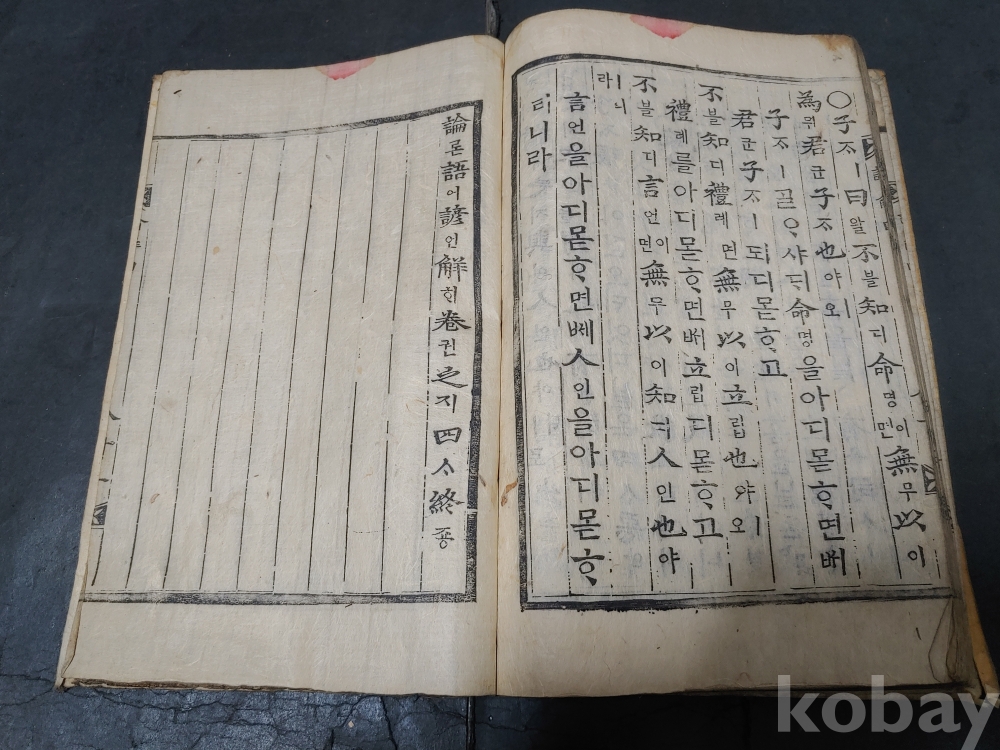 ○子ᄌᆞㅣ曰왈不블知디命명이면無무以이
為위君군子ᄌᆞ也야ㅣ오
子ᄌᆞㅣ골ᄋᆞ샤ᄃᆡ命명을아디몯ᄒᆞ면ᄡᅥ
君군子ᄌᆞㅣ되디몯ᄒᆞ고
不블知디禮례면無무以이立립也야ㅣ오
禮례를아디몯ᄒᆞ면ᄡᅥ立립디몯ᄒᆞ고
不블知디言언이면無무以이知디人인也야
ㅣ니라
言언을아디몯ᄒᆞ면ᄡᅥ人인을아디몯ᄒᆞ
티니라
論론語어諺언解ᄒᆡ卷권之지四ᄉᆞ終죵
kobay